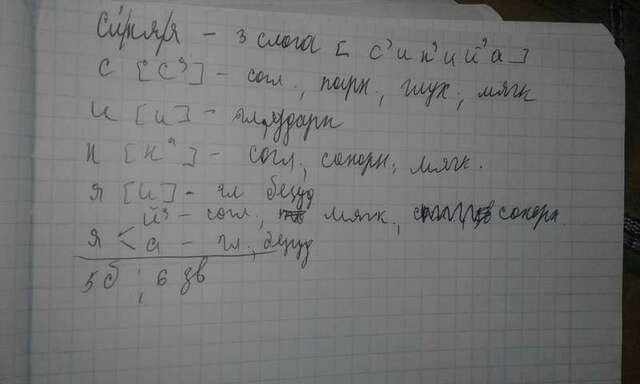 Си́/ня/я – 3 слога [с'ин'ий'а]
с [с'] – согл., парн, глух, мягк
и [и] – гл, ударн
н [н'] – согл, сонорн, мягк.
я [и] – гл безуд
й' – согл., мягк, сонорн.
я < а – гл., безуд
5 б, 6 зв